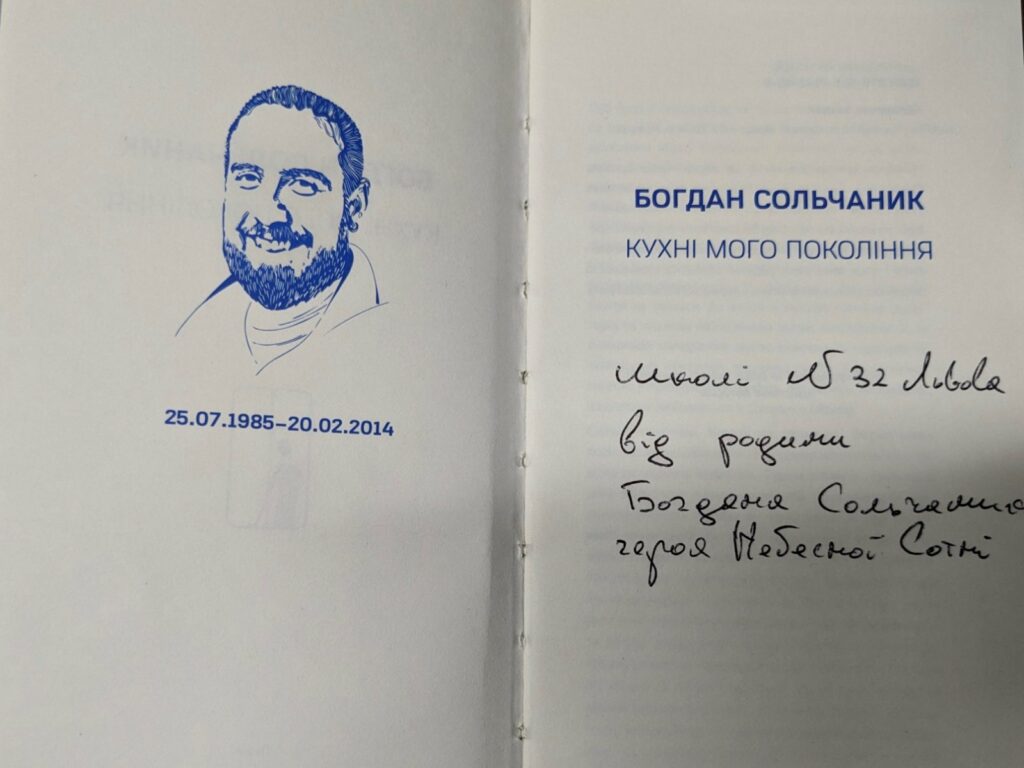 25.07.1985–20.02.2014
БОГДАН СОЛЬЧАНИК
КУХНІ МОГО ПОКОЛІННЯ
школі № 32 Львова
від родини
Богдана Сольчаника
героя Небесної Сотні